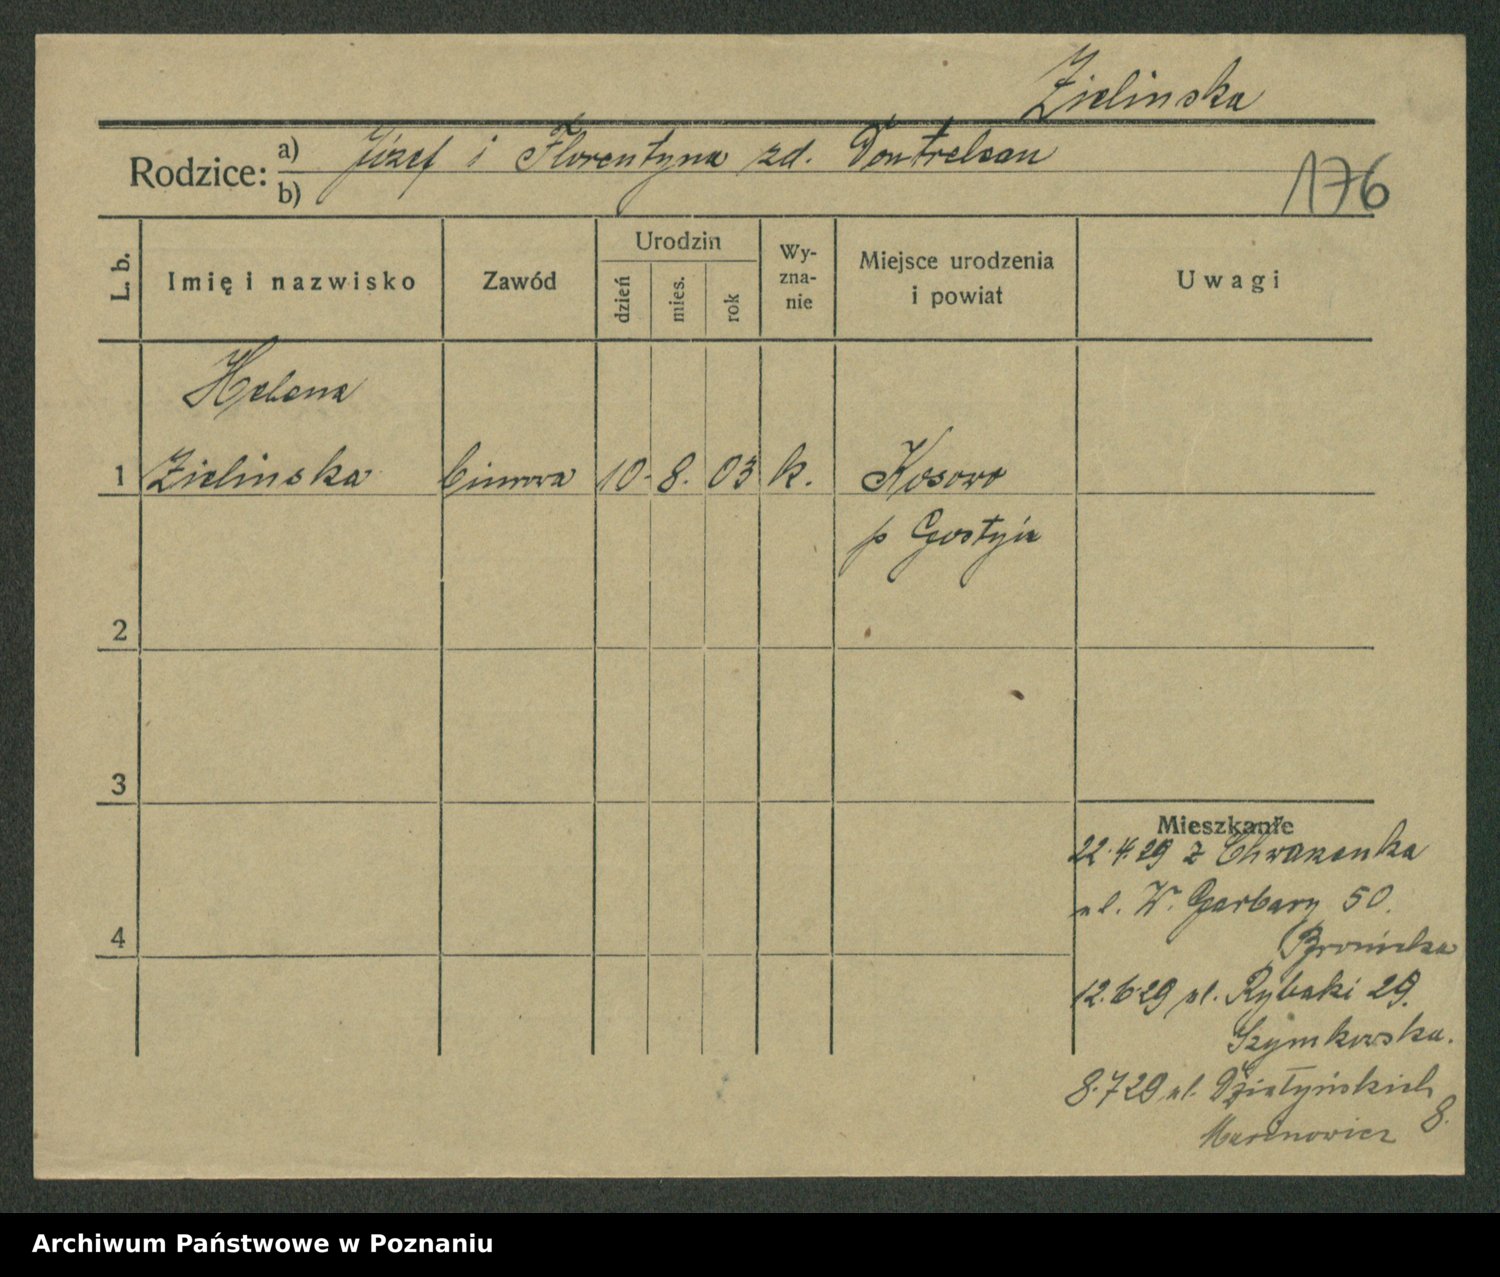 Zielinska
Rodzice: a) Józef i Florentyna zd.
b)
176
L. b.
Imię i nazwisko
Zawód
Urodzin
dzień
mies.
rok
Wy-
zna-
nie
Miejsce urodzenia
i powiat
Uwagi
Helena
1 Zielinska 10. 8. 03 k. Kosowo
p Gostyń
2
3
4
Mieszkanie
22.4.29 z
ul. W. Garbary 50.
Bronicka
12.6.29 ul. Rybaki 29.
Szymkowska.
8.7 29 ul. Działyńskich 8.
Archiwum Państwowe w Poznaniu